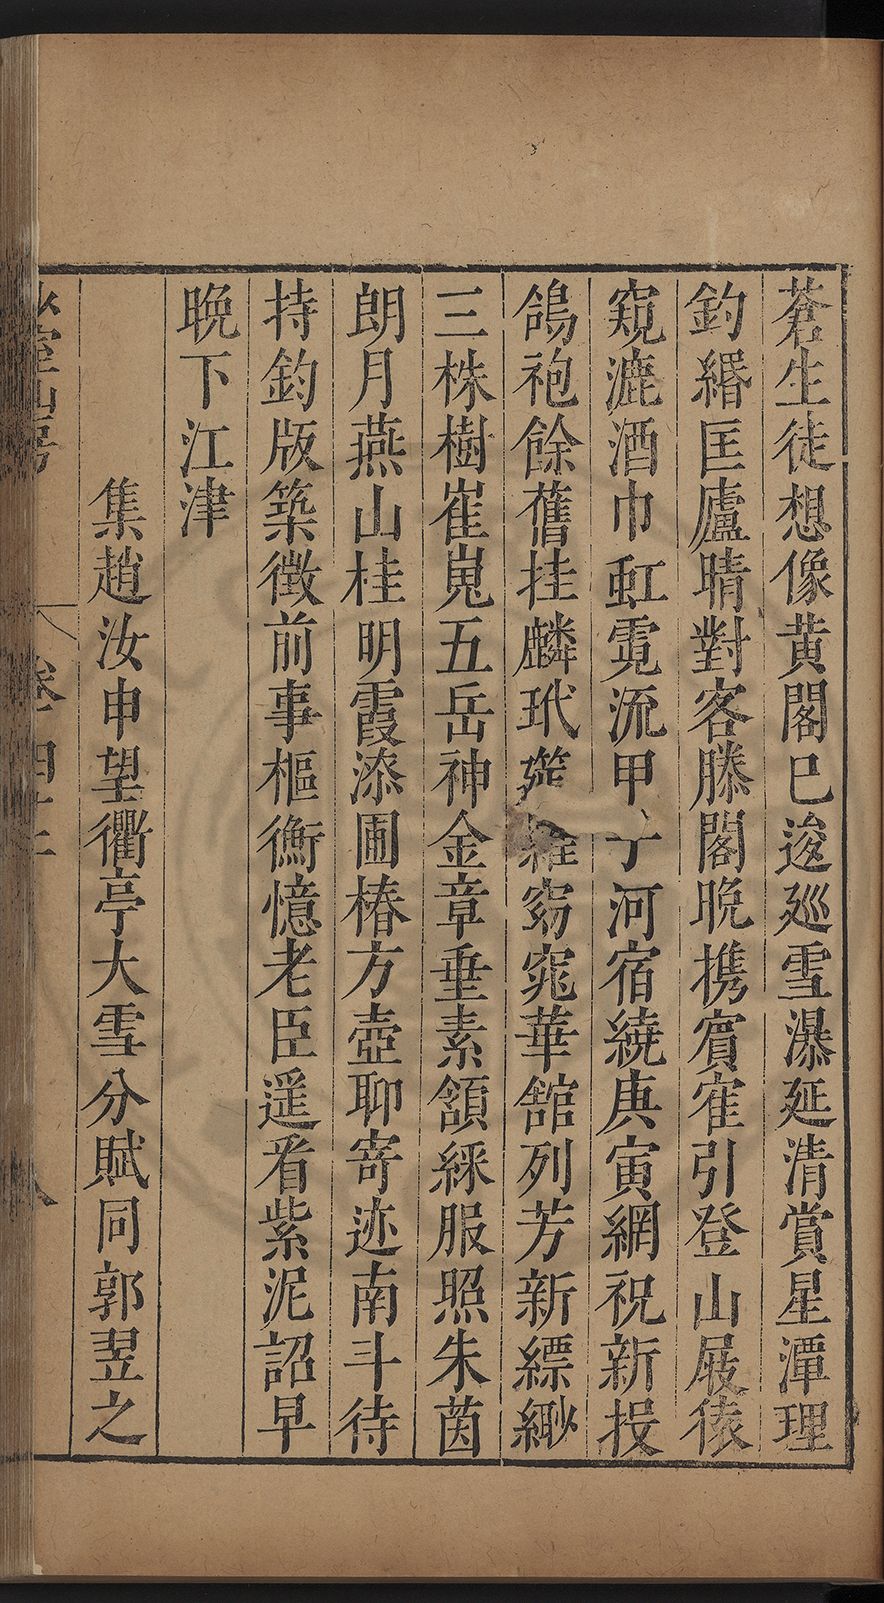 蒼生徒想像黃閣巳逡廵雪瀑延清賞星潭理
釣緡匡廬晴對客滕閣晩携賔寉引登山屐猿
窺漉酒巾虹霓流甲子河宿繞庚寅網祝新投
鴿袍餘舊挂麟玳筵羅窈窕華舘列芳新縹緲
三株樹崔嵬五岳神金章垂素頷綵服照朱茵
朗月燕山桂明霞漆圃椿方壺聊寄迹南斗待
持釣版築徴前事樞衡憶老臣遥看紫泥詔早
晩下江津
集趙汝申望衢亭大雪分賦同郭翌之
室山房 卷四十 八